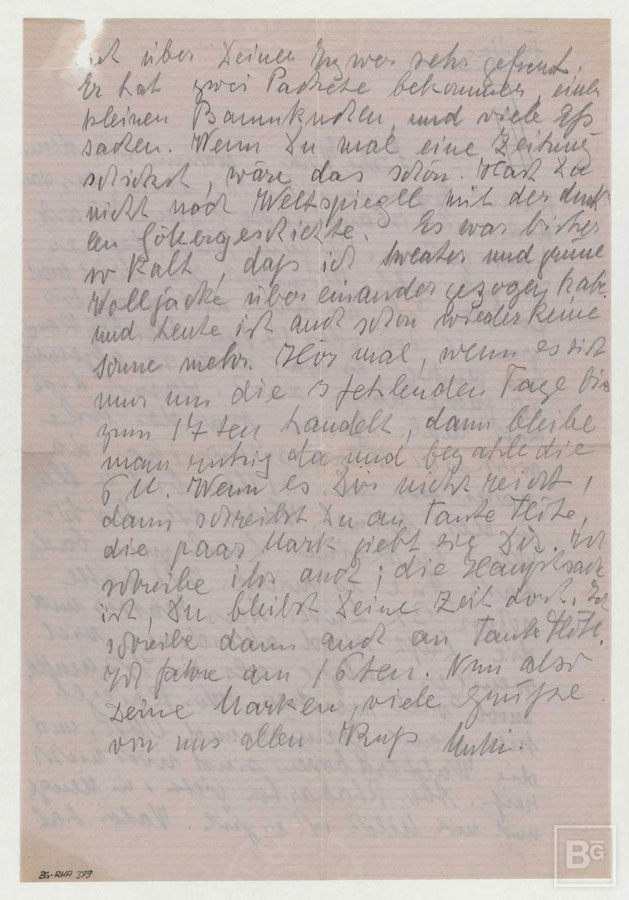 ich über Deinen Ing war sehr gefreut.
Er hat zwei Packete bekommen, einen
kleinen Baumkuchen, und viele Eß
sachen. Wenn Du mal eine Zeitung
schickst, wäre das schön. Hast Du
nicht noch Weltspiegel mit der
len Gökergeschichte. Es war bisher
so kalt, daß ich Sweater und grüne
Wolljacke übereinander gezogen habe.
und heute ist auch schon wieder keine
Sonne mehr. Hör mal, wenn es sich
nur um die 3 fehlenden Tage bis
zum 17ten handelt, dann bleibe
man ruhig da und bezahle die
6 M. Wenn es Dir nicht reicht,
dann schreibst Du an Tante
die paar Mark giebt sie Dir. Ich
schreibe ihr auch; die Hauptsache
ist, Du bleibst Deine Zeit dort. Ich
schreibe dann auch an Tante
Ich fahre am 16ten. Nun also
Deine Marken, viele Grüße
von uns allen Kuß Mutti.
BG-RHA 379
BG